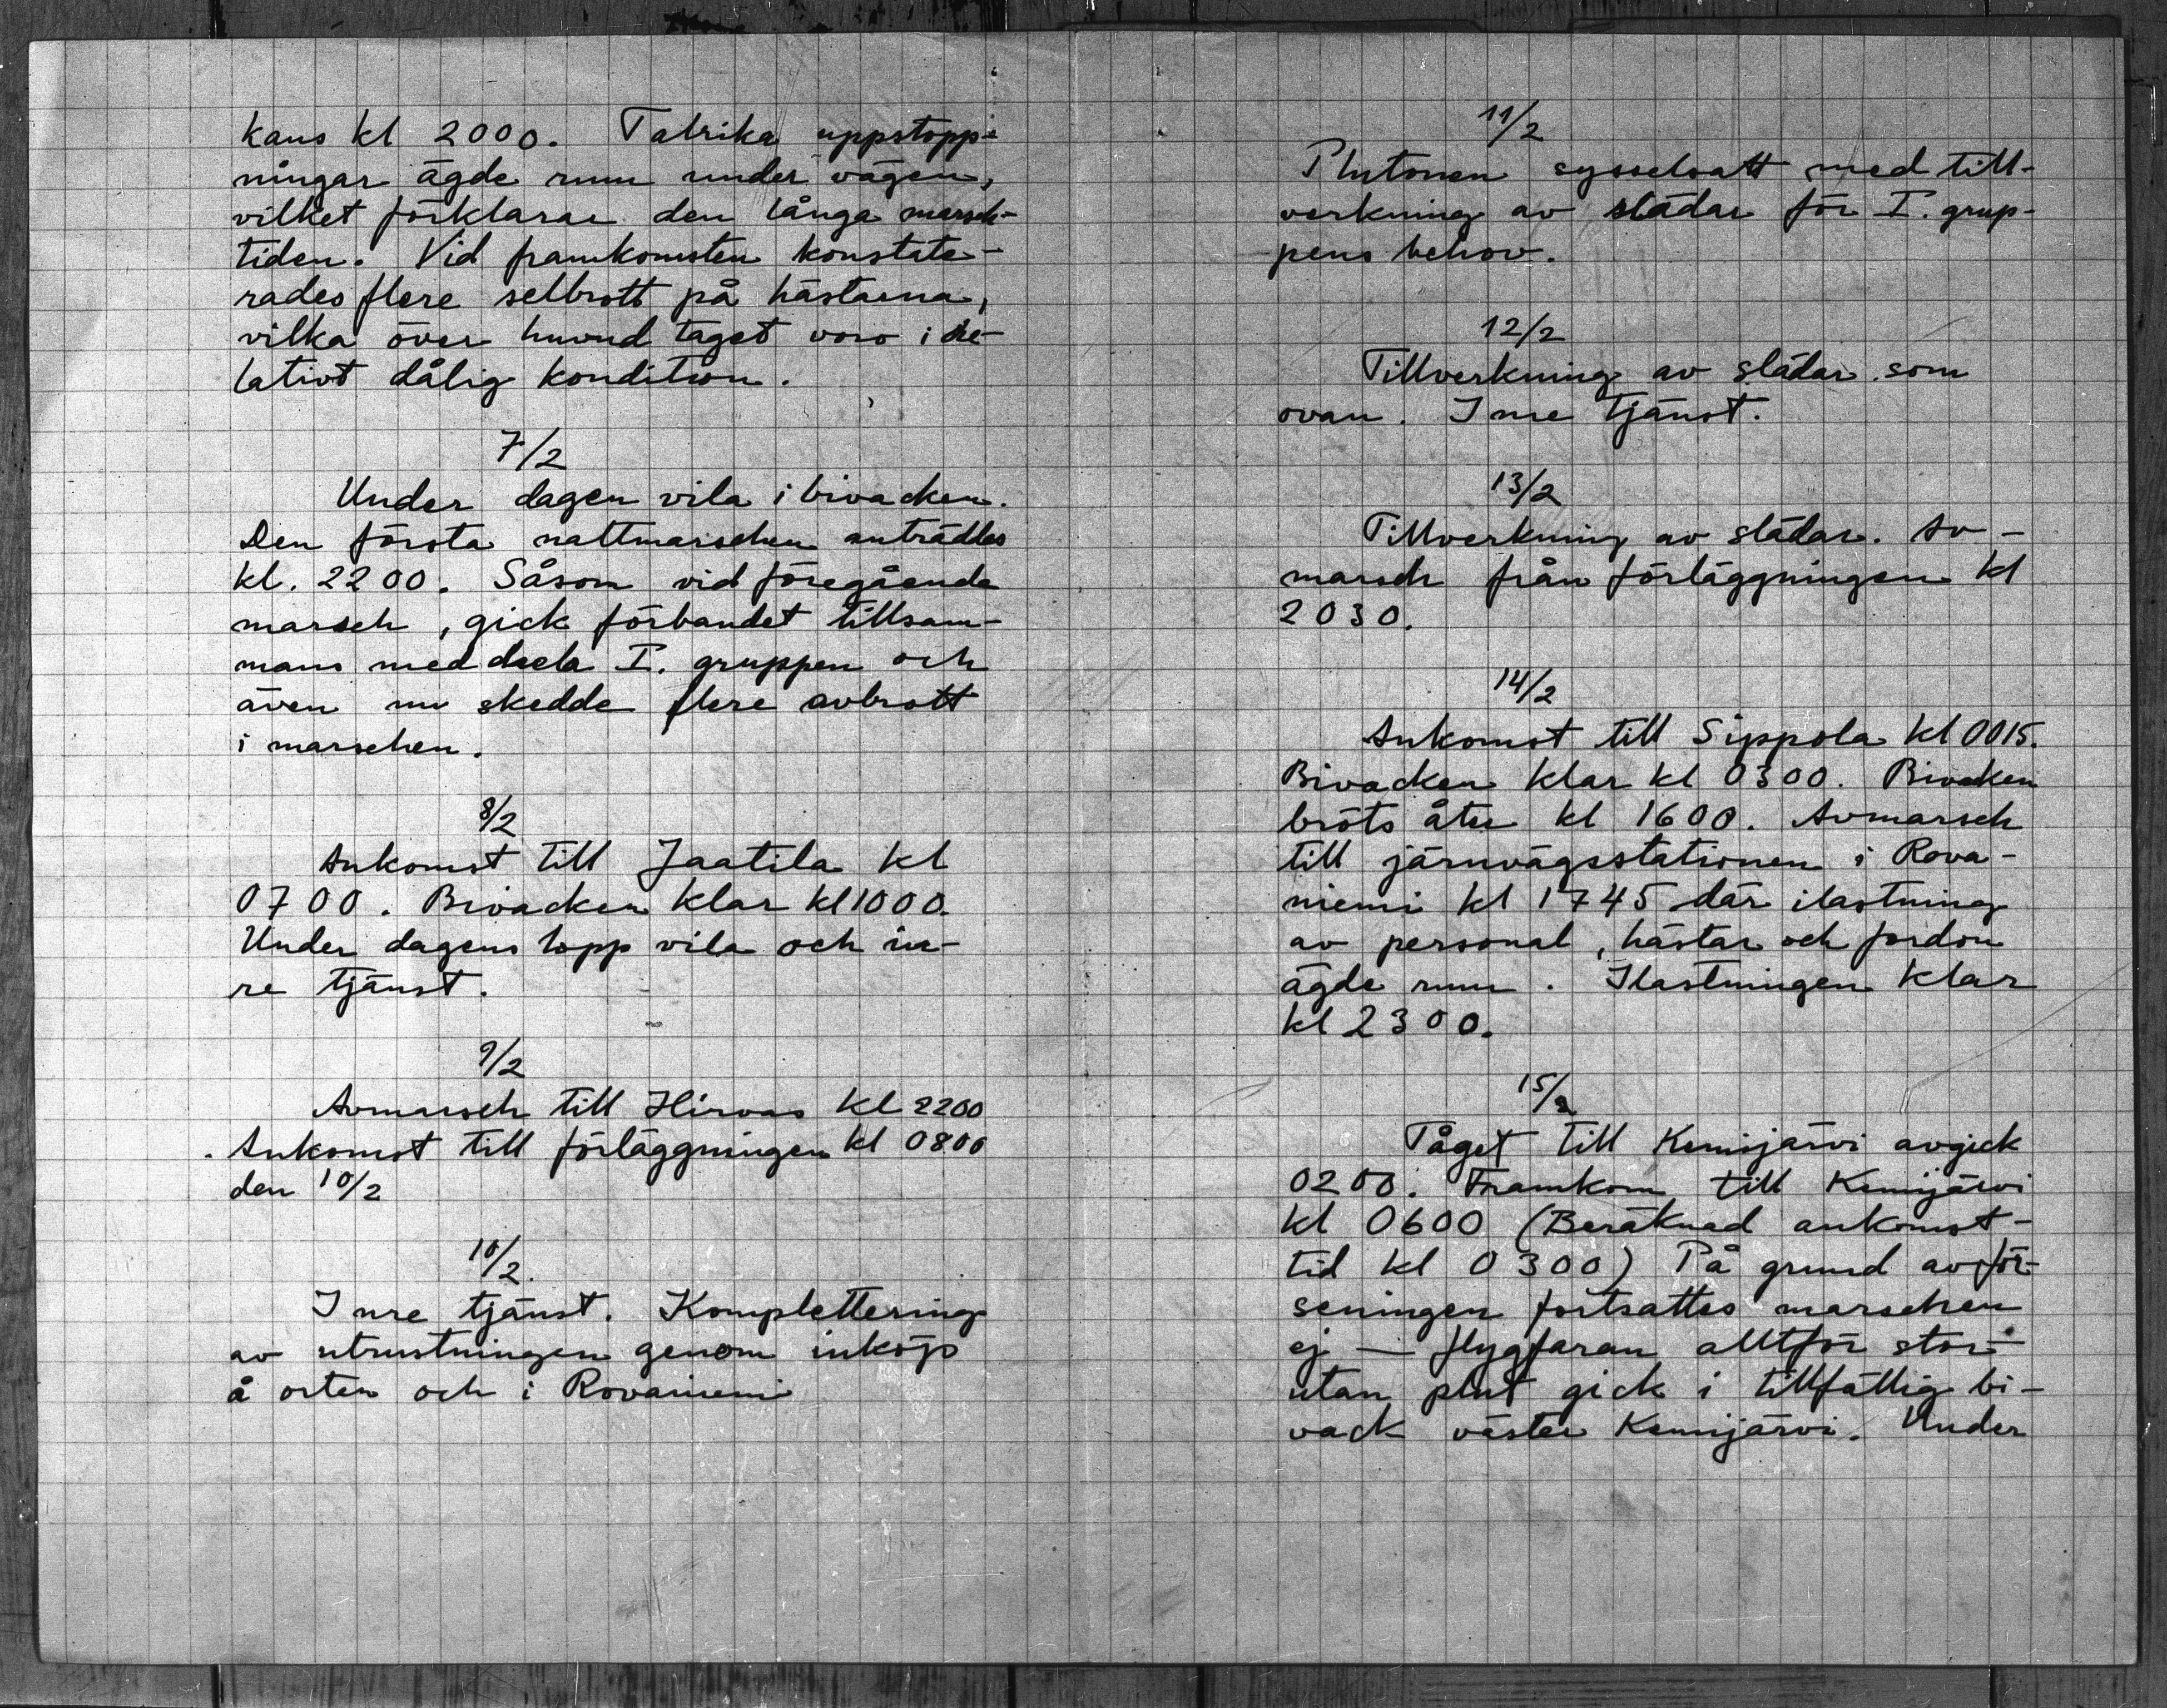 kans kl 2000. Talrika uppstopp-
ningar ägde rum under vägen,
vilket förklarar den långa marsch-
tiden. Vid framkomsten konstate-
rades flere selbrott på hästarna,
vilka över huvud taget voro i re-
lativt dålig kondition.
7/2
Under dagen vila i bivacken.
Den första nattmarschen anträddes
kl. 2200. Såsom vid föregående
marsch, gick förbandet tillsam-
mans med dela I. gruppen och
även nu skedde flere avbrott
i marschen.
8/2
Ankomst till Jaatila kl
0700. Bivacken klar kl 1000.
Under dagens lopp vila och in-
re tjänst.
9/2
Avmarsch till Hirvas kl 2200
Ankomst till förläggningen kl 0800
den 10/2
10/2.
Inre tjänst. Komplettering
av utrustningen genom inköp
å orten och i Rovaniemi
11/2
Plutonen sysselsatt med till-
verkning av slädar för I. grup-
pens behov.
12/2
Tillverkning av slädar som
ovan. Inre tjänst.
13/2
Tillverkning av slädar. Av-
marsch från förläggningen kl
2030.
14/2
Ankomst till Sippola kl 0015.
Bivacken klar kl 0300. Bivacken
bröts åter kl 1600. Avmarsch
till järnvägsstationen i Rova-
niemi kl 1745 där ilastning
av personal, hästar och fordon
ägde rum. Ilastningen klar
kl 2300.
15/2
Tåget till Kemijärvi avgick
0200. Framkom till Kemijärvi
kl 0600 (Beräknad ankomst-
tid kl 0300) På grund av för-
seningen fortsattes marschen
ej — flygfaran alltför stor —
utan plut gick i tillfällig bi-
vack väster Kemijärvi. Under